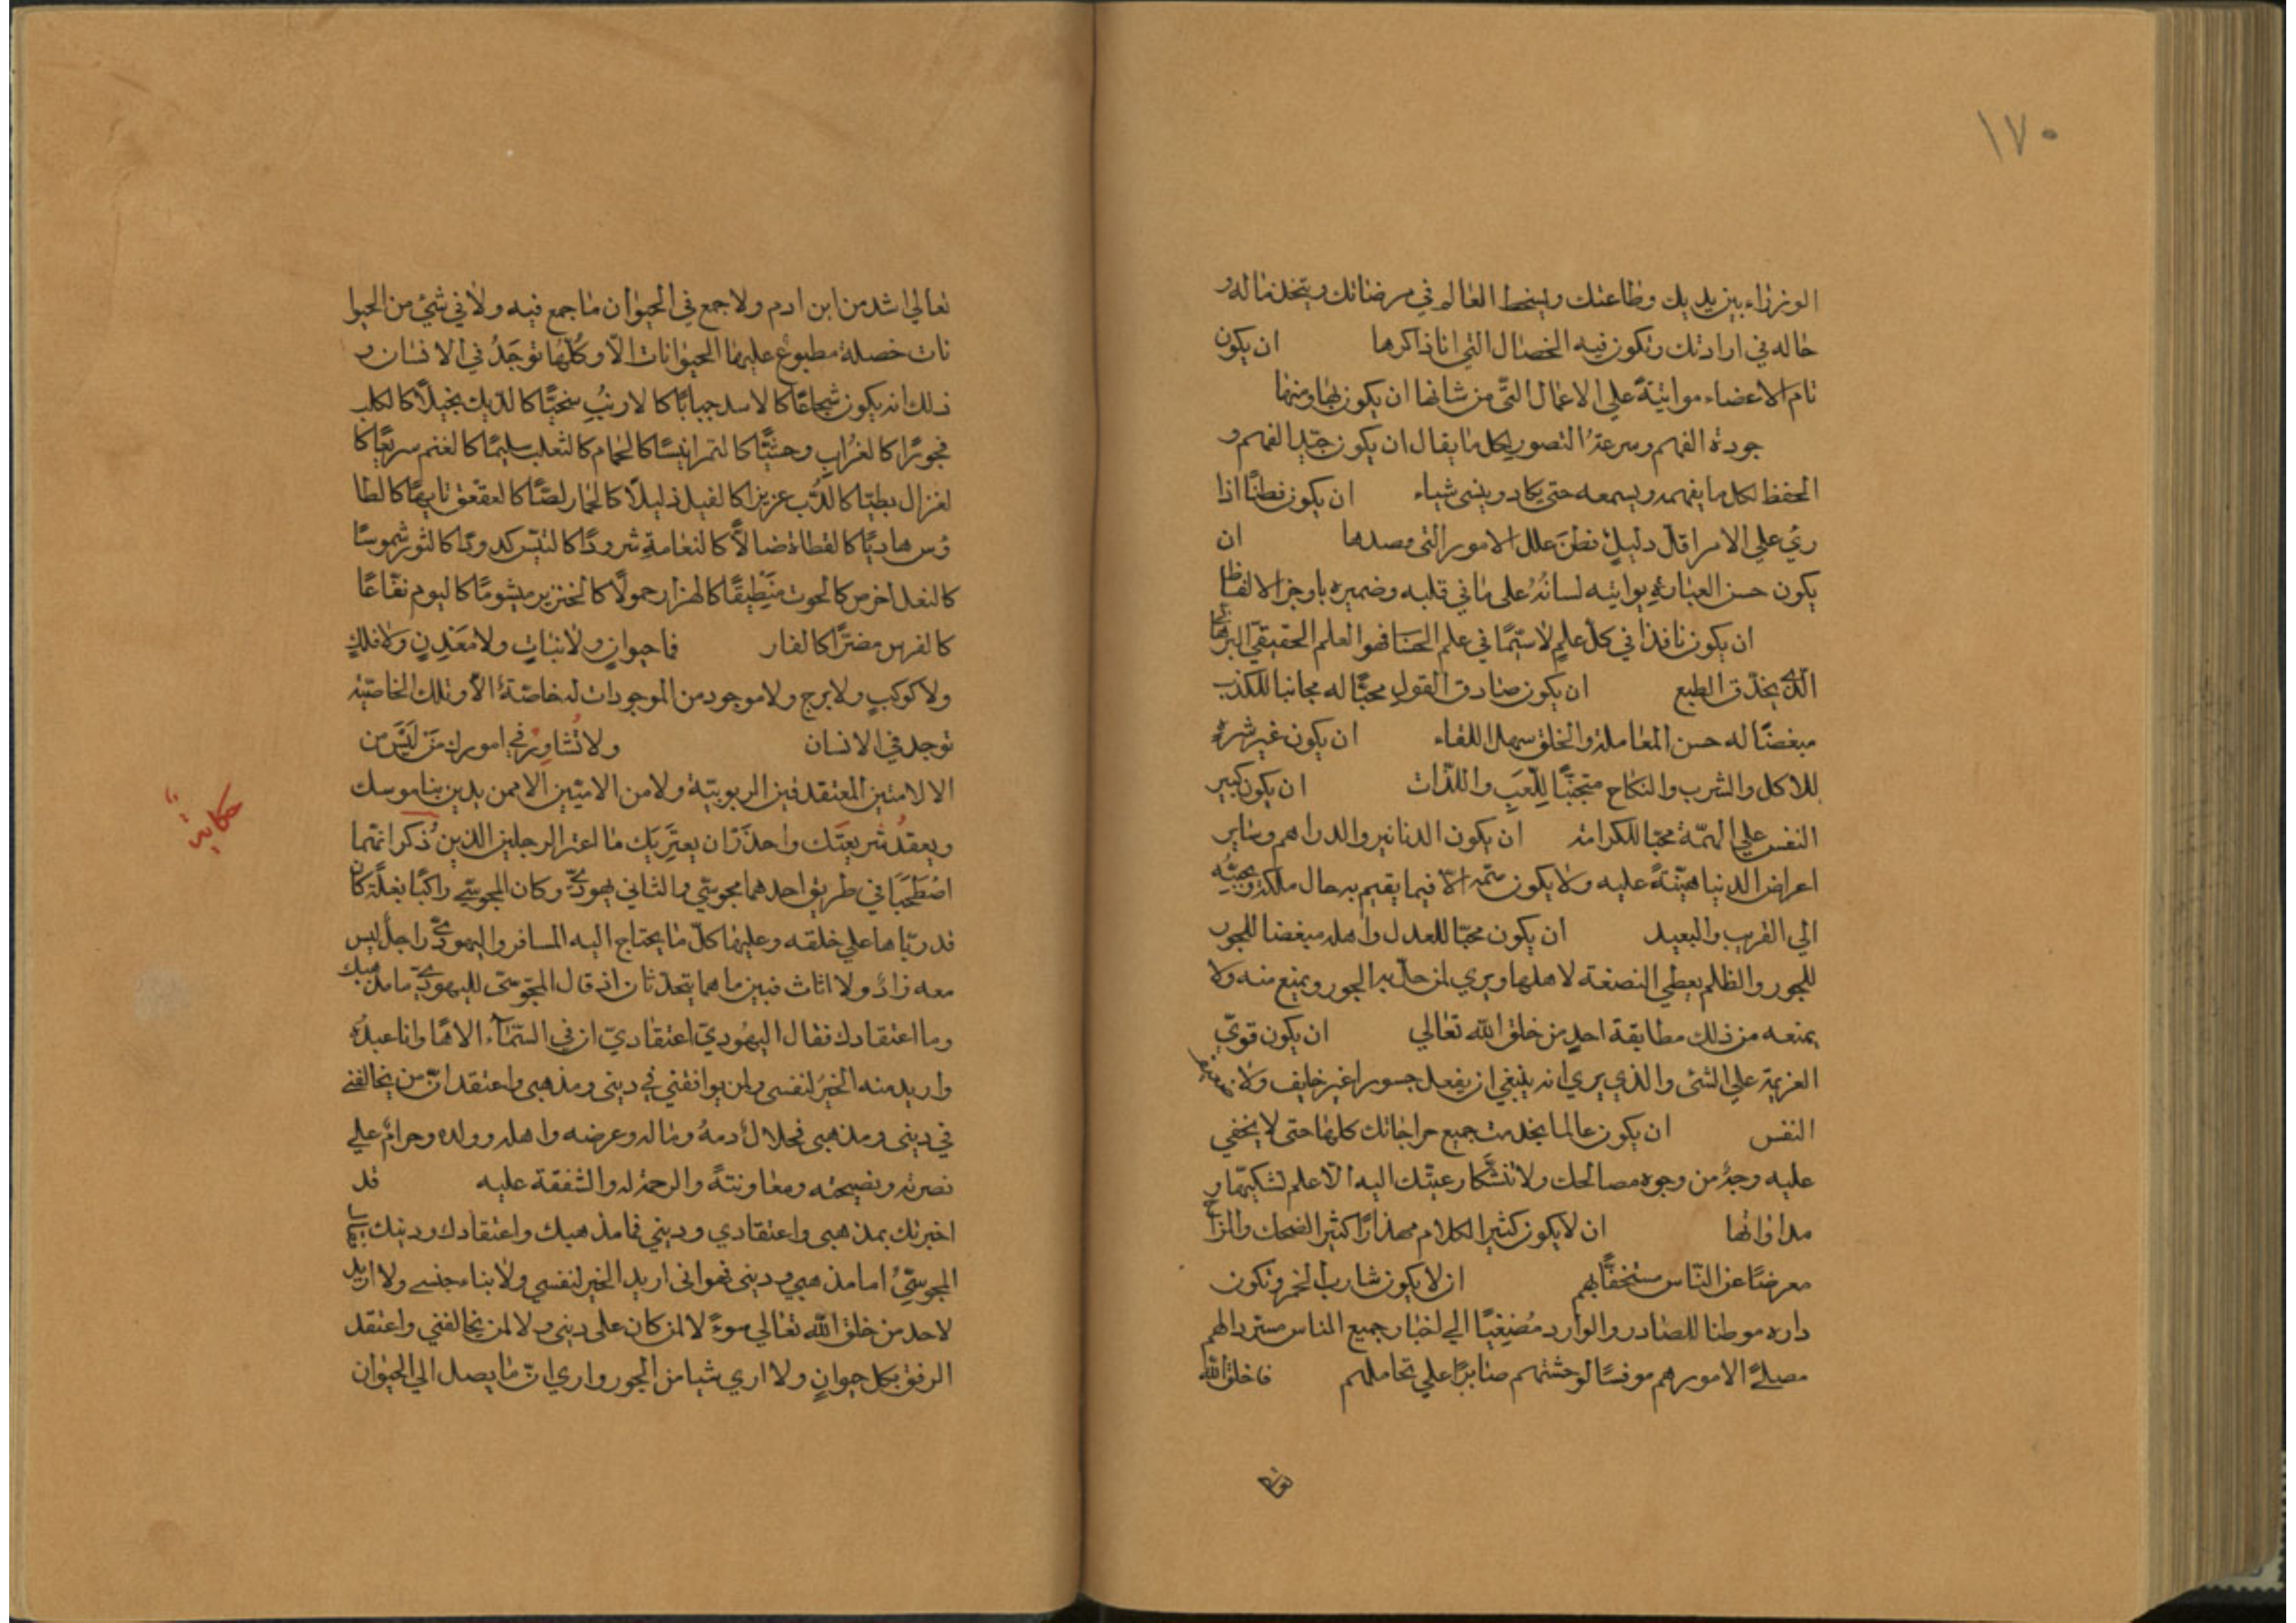 ١٧٠
الوزراء بين يديك وطاعتك ويسخط العالم في مرضاتك ويتخذ ماله و
حاله في ارادتك وتكون فيه الخصال التي انا ذاكرها ان يكون
تام الاعضاء مواتيةً علي الاعمال التّى من شانها ان يكون بها ومنها
جودة الفهم وسرعة التصور لكل ما يقال ان يكون جيّد الفهم و
الحفظ لكل ما يفهمه ويسمعه حتى يكاد وينسى شياء ان يكون فطنًا اذا
رئ علي الامر اقل دليلٍ فطن علل الامور التى قصدها ان
يكون حسن العبارة يواتيه لسانُهُ على ما في قلبه وضميره باوجز الالفاظ
ان يكون نافذا في كل علمٍ لاسيّما في علم الحسا فهو العلم الحقيقيّ البرهاني
الّذي يحذّق الطبع ان يكون صادق القول محبًّا له مجانبا للكذب
مبغضًا له حسن المعاملة والخلق سهل اللقاء ان يكون غير شره
للاكل والشرب والنكاح متجنّبًا للّعب واللذّات ان يكون كبير
النفس علي الهمّة محبّا للكرامة ان يكون الدنانير والدراهم وساير
اعراض الدنيا هيّنةً عليه ولا يكون همّه الّا فيما يقيم به حال ملكه ويحبّبه
الي القريب والبعيد ان يكون محبّا للعدل واهله مبغضا للجور
للجور والظلم يعطي النصفة لاهلها ويري لمن حل به الجور ويمنع منه ولا
يمنعه من ذلك مطابقة احدٍ من خلق الله تعالي ان يكون قويّ
العزيمة علي الشئ والذي يري انه ينبغي ان يفعل جسورا غير خايف ولا ضعيف
النفس ان يكون عالما بخدمت جميع حراجاتك كلها حتى لا يخفي
عليه وجهٌ من وجوه مصالحك ولا تتشكّا رعيّتك اليه الّا علم لشكيّتها و
مداواتها ان لا يكون كثير الكلام مهذارًا كثير الضحك والمزاح
معرضًا عن النّاس مستخفًّا بهم ان لا يكون شارب الخمر وتكون
داره موطنا للصّادر والوارد مُصْغِيًا الي اخبار جميع الناس مستردا لهم
مصلحًا لامورهم مونسًا لوحشتهم صابرًا علي تحاملهم فما خلق الله
تعالي
تعالي اشد من ابن ادم ولا جمع في الحيوان ما جمع فيه ولا في شئ من الحيوا
نات خصلة مطبوع عليها الحيوانات الّا وكلّها توجَدُ في الانسان و
ذلك انه يكون شجاعًا كالاسد جبابًا كالارنب سخيًّا كالديك بخيلًا كالكلب
فجورًا كالغراب وحشيًّا كالنمر انيسًا كالحمام كالثعلب سليمًا كالغنم سريعًا كا
لغزال بطيّا كالدّب عزيزا كالفيل ذليلًا كالحمار لصًّا كالعقعق تايهًا كالطا
وُس هاديًا كالقطاة ضالًّا كالنعامة شرودًا كالتيس كدودًا كالثور شموسًا
كالبغل اخرس كالحوت منطيقًا كالهزار حمولًا كالخنزير ميشومًا كاليوم نفّاعًا
كالفرس مضرًّا كالفار فما حيوانٍ ولا نباتٍ ولا معدنٍ ولا فلكٍ
ولا كوكبٍ ولا برج ولا موجود من الموجودات له خاصّة الّا وتلك الخاصّية
توجد في الانسان ولا تُشاوِر في امورك مَن لَيسَ من
الالامتين المعتقد فين الربوبيّة ولا من الاميّين الا ممن يدين بناموسك
حكاية
ويعقد شريعتك واحذر ان يعتريك ما اعتر الرجلين الذين ذكر انّهما
اصطحبا في طريق احدهما مجوسيّ والثاني يهوديّ وكان المجوسيّ راكبًا بغلة كان
قد ربّاها علي خلقه وعليها كلّ ما يحتاج اليه المسافر واليهوديّ راجل ليس
معه زادٌ ولا اثاث فبين ما هما يتحدّثان اذ قال المجوسيّ لليهوديّ ما مذهبك
وما اعتقادك فقال اليهوديّ اعتقاديّ ان في السّماء الاهًا وانا عبدُه
واريد منه الخيرَ لنفسى ولمن يوافقني في دينى ومذهبى واعتقد انّ من يخالفنى
في دينى ومذهبى فحلالٌ دمهُ وماله وعرضه واهله وولده وحرامٌ علي
نصرته ونصيحته ومعاونتهُ والرحمة له والشفقة عليه قد
اخبرتك بمذهبى واعتقادي وديني فما مذهبك واعتقادك ودينك
المجوسيّ اما مذهبي ودينى فهو انى اريد الخير لنفسي ولابناء جنسى ولا اريد
لاحد من خلق الله تعالي سوءً لا لمن كان على دينى ولا لمن يخالفني واعتقد
الرفق بكل حيوانٍ ولا اري شيا من الجور واري انّ ما يصل الي الحيوان